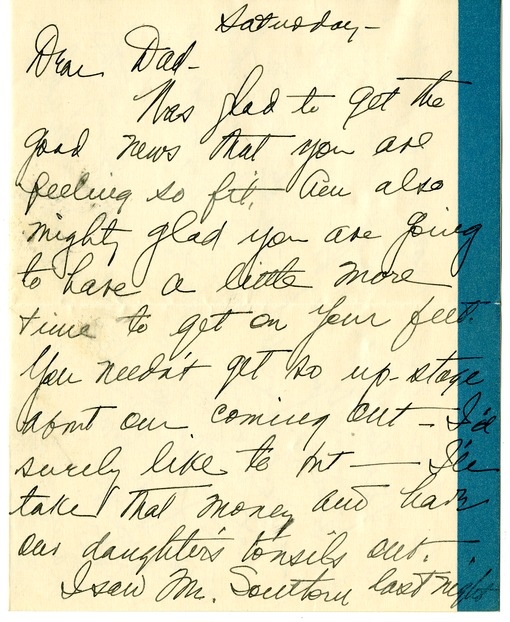 Saturday-
Dear Dad-
Was glad to get the
good news that you are
feeling so fit. Am also
mighty glad you are going
to have a little more
time to get on your feet.
You needn't get so up-stage
about our coming out - I'd
surely like to but — I'll
take that money and have
our daughter's tonsils out.
I saw Mr. Southern last night